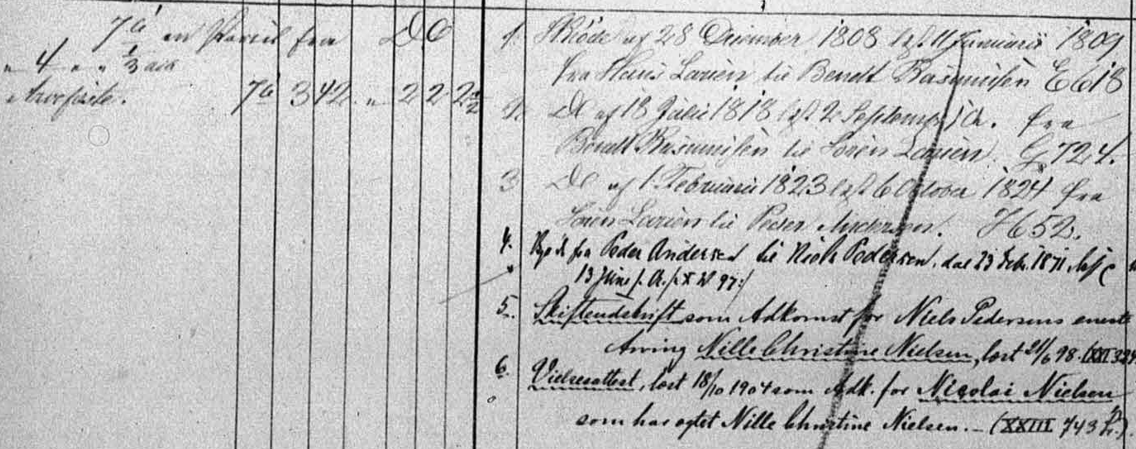 7a en Parcel fra DO
" 4 " " 1/3
7a 342 " 2 2 2 1/2
1. Skiøde af 28 December 1808 læst 11 Januarii 1809
fra Hans Larsen til Bendt Rasmussen E 618
2. DO af 18 Julii 1818 læst 2 September s. A. fra
Bendt Rasmussen til Søren Larsen. G 724.
3 DO af 1 Februarii 1823 læst 6 October 1824 fra
Søren Larsen til Peder Andersen. H 52.
4. Skjøde fra Peder Andersen til Niels Pedersen, dat 23 Febr. 1871,
13 Juni s. A. X 97.
5. Skifteudskrift som Adkomst for Niels Pedersens eneste
Arving Nille Christine Nielsen, læst 21/6 98. (XXI
6. Vielsesattest, læst 18/10 1904 som Adk. for Nicolai Nielsen
som har ægtet Nille Christine Nielsen. - (XXIII 743